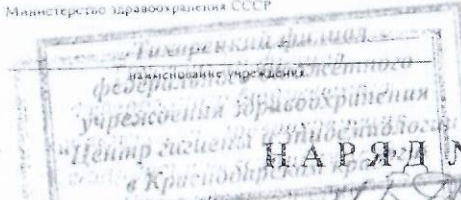 Министерство здравоохранения СССР
Тихорецкий филиал
наименование учреждения
федерального бюджетного
учреждения здравоохранения
"Центр гигиены и эпидемиологии
НАРЯД №
в Краснодарском крае"